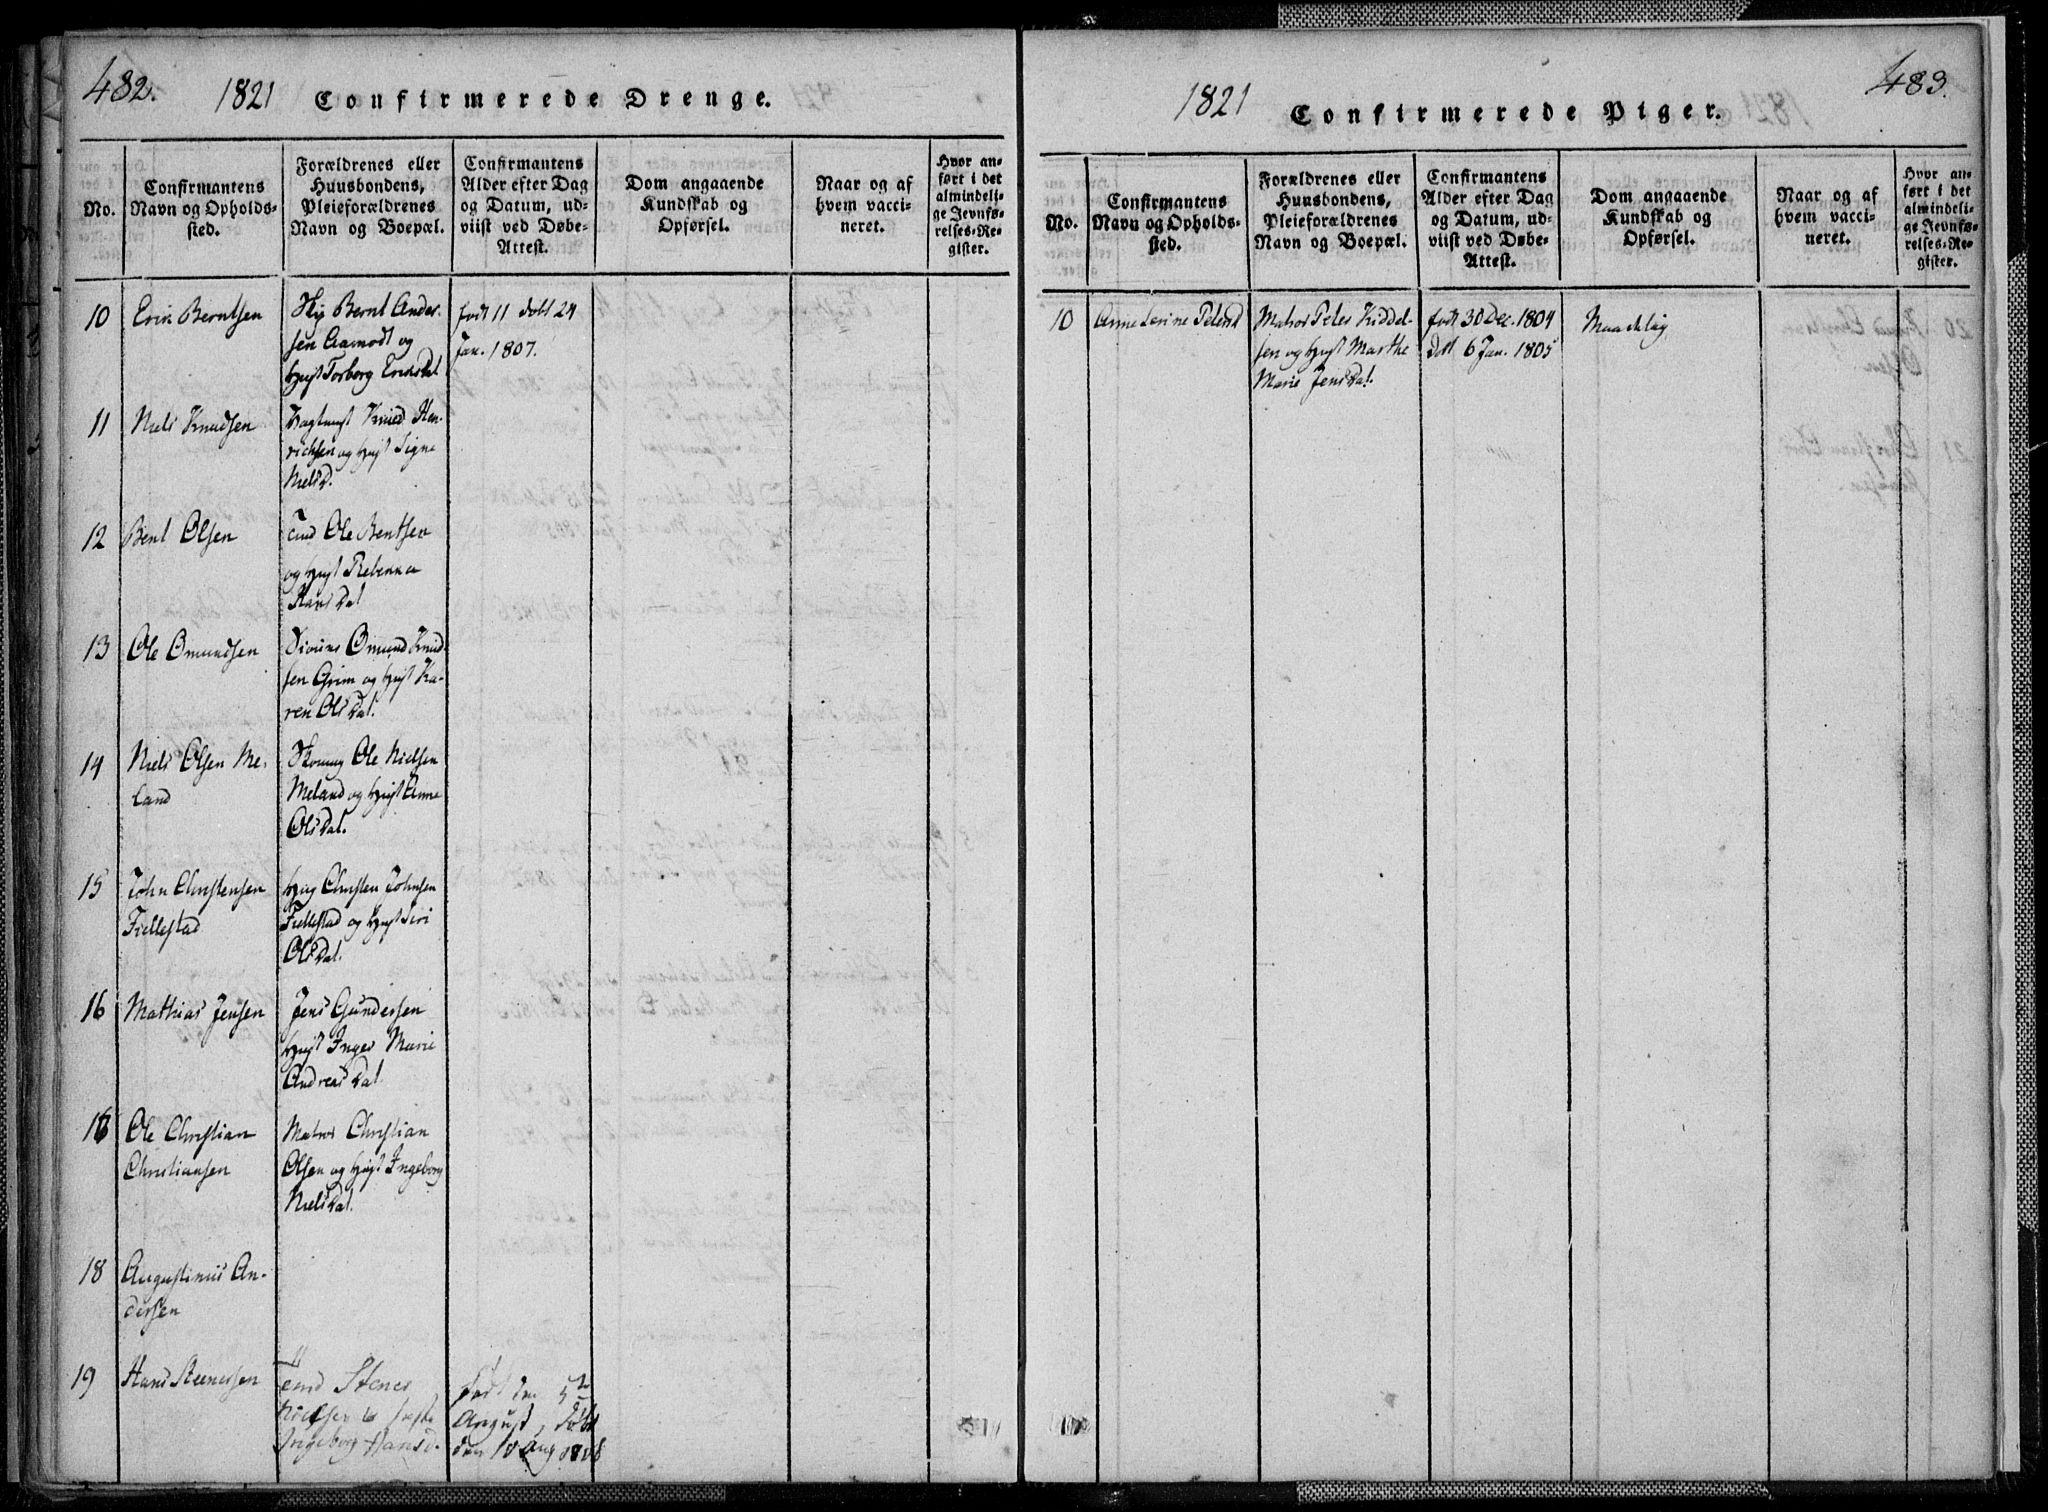 482.
1821 Confirmerede Drenge.
No.
Confirmantens
Navn og Opholds-
sted.
Forældrenes eller
Huusbondens,
Pleieforældrenes
Navn og Boepæl.
Confirmantens
Alder efter Dag
og Datum, ud-
viist ved Døbe-
Attest.
Dom angaaende
Kundskab og
Opførsel.
Naar og af
hvem vacci-
neret.
Hvor an-
ført i det
almindeli-
ge Jevnfø-
relses-Re-
gister.
10 Erik Berntsen
Bernt Ander-
sen Aamodt og
Hust Torborg Eriksdat
født 11 døbt 24
Jan. 1807.
11 Niels Knudsen
Knud Hen-
richsen og Hust Signe
Nielsd.
12 Bent Olsen
Ole Bentsen
og Hust Rebenna
Hansdat
13 Ole Omundsen
Omund Knud-
sen Grim og Hust Ka-
ren Olsdat.
14 Niels Olsen Me-
land
Ole Nielsen
Meland og Hust Anne
Olsdat.
15 John Christensen
Fiellestad
Christen Johnsen
Fiellestad og Hust Siri
Olsdat.
16 Mathias Jensen
Jens Gundersen
Hust Inger Marie
Andreasdat.
Ole Christian
Christiansen
Matros Christian
Olsen og Hust Ingeborg
Nielsdat.
18 Augustinus An-
dersen
19 Hans Steenersen
Stener
Nielsen
Ingeborg Hansd.
født den 5te
August, døbt
den 10 Aug
483.
1821 Confirmerede Piger.
No.
Confirmantens
Navn og Opholds-
sted.
Forældrenes eller
Huusbondens,
Pleieforældrenes
Navn og Boepæl.
Confirmantens
Alder efter Dag
og Datum, ud-
viist ved Døbe-
Attest.
Dom angaaende
Kundskab og
Opførsel.
Naar og af
hvem vacci-
neret.
Hvor an-
ført i det
almindeli-
ge Jevnfø-
relses-Re-
gister.
10 Anne Serine Petersd
Matros Peter Kiddel-
sen og Hust Marthe
Marie Jensdat.
født 30 Dec. 1804
døbt 6 Jan. 1805
Maadelig